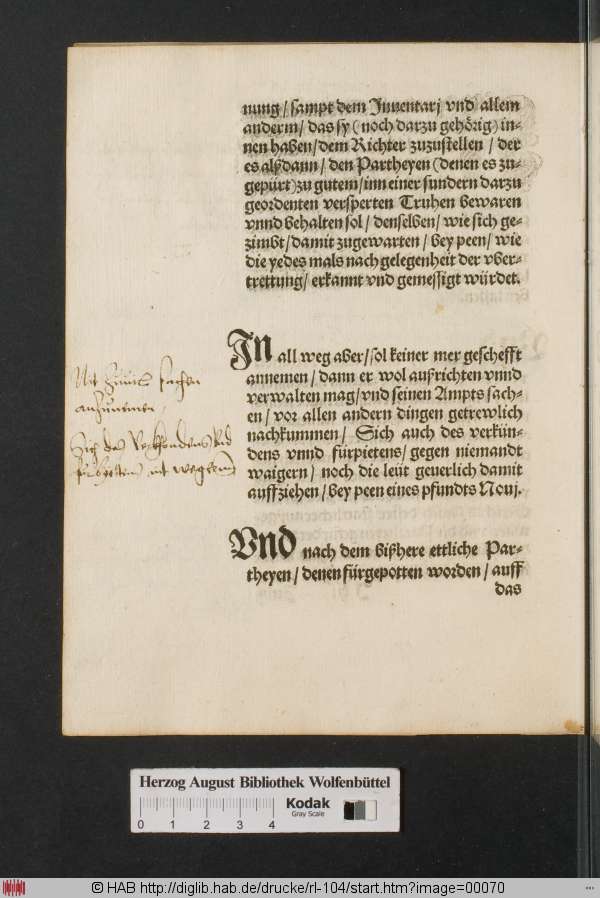 nung / sampt dem Jnuentarj vnd allem
anderm / das sy (noch darzu gehörig) in-
nen haben / dem Richter zuzustellen / der
es alßdann / den Partheyen (denen es zu-
gepürt) zu gutem / inn einer sundern darzu
geordenten versperten Truhen bewaren
vnnd behalten sol / denselben / wie sich ge-
zimbt / damit zugewarten / bey peen / wie
die yedes mals nach gelegenheit der vber-
trettung / erkannt vnd gemessigt würdet.
JN all weg aber / sol keiner mer geschefft
annemen / dann er wol außrichten vnnd
verwalten mag / vnd seinen Ampts sach-
en / vor allen andern dingen getrewlich
nachkummen / Sich auch des verkün-
dens vnnd fürpietens / gegen niemandt
waigern / noch die leüt geuerlich damit
auffziehen / bey peen eines pfundts Nouj.
Nit sachen
anzunemen
Sich des Verkhondens vnd
nit wegern
Vnd nach dem bißhere ettliche Par-
theyen / denen fürgepotten worden / auff
das
Herzog August Bibliothek Wolfenbüttel
Kodak
Gray Scale
0 1 2 3 4
© HAB http://diglib.hab.de/drucke/rl-104/start.htm?image=00070